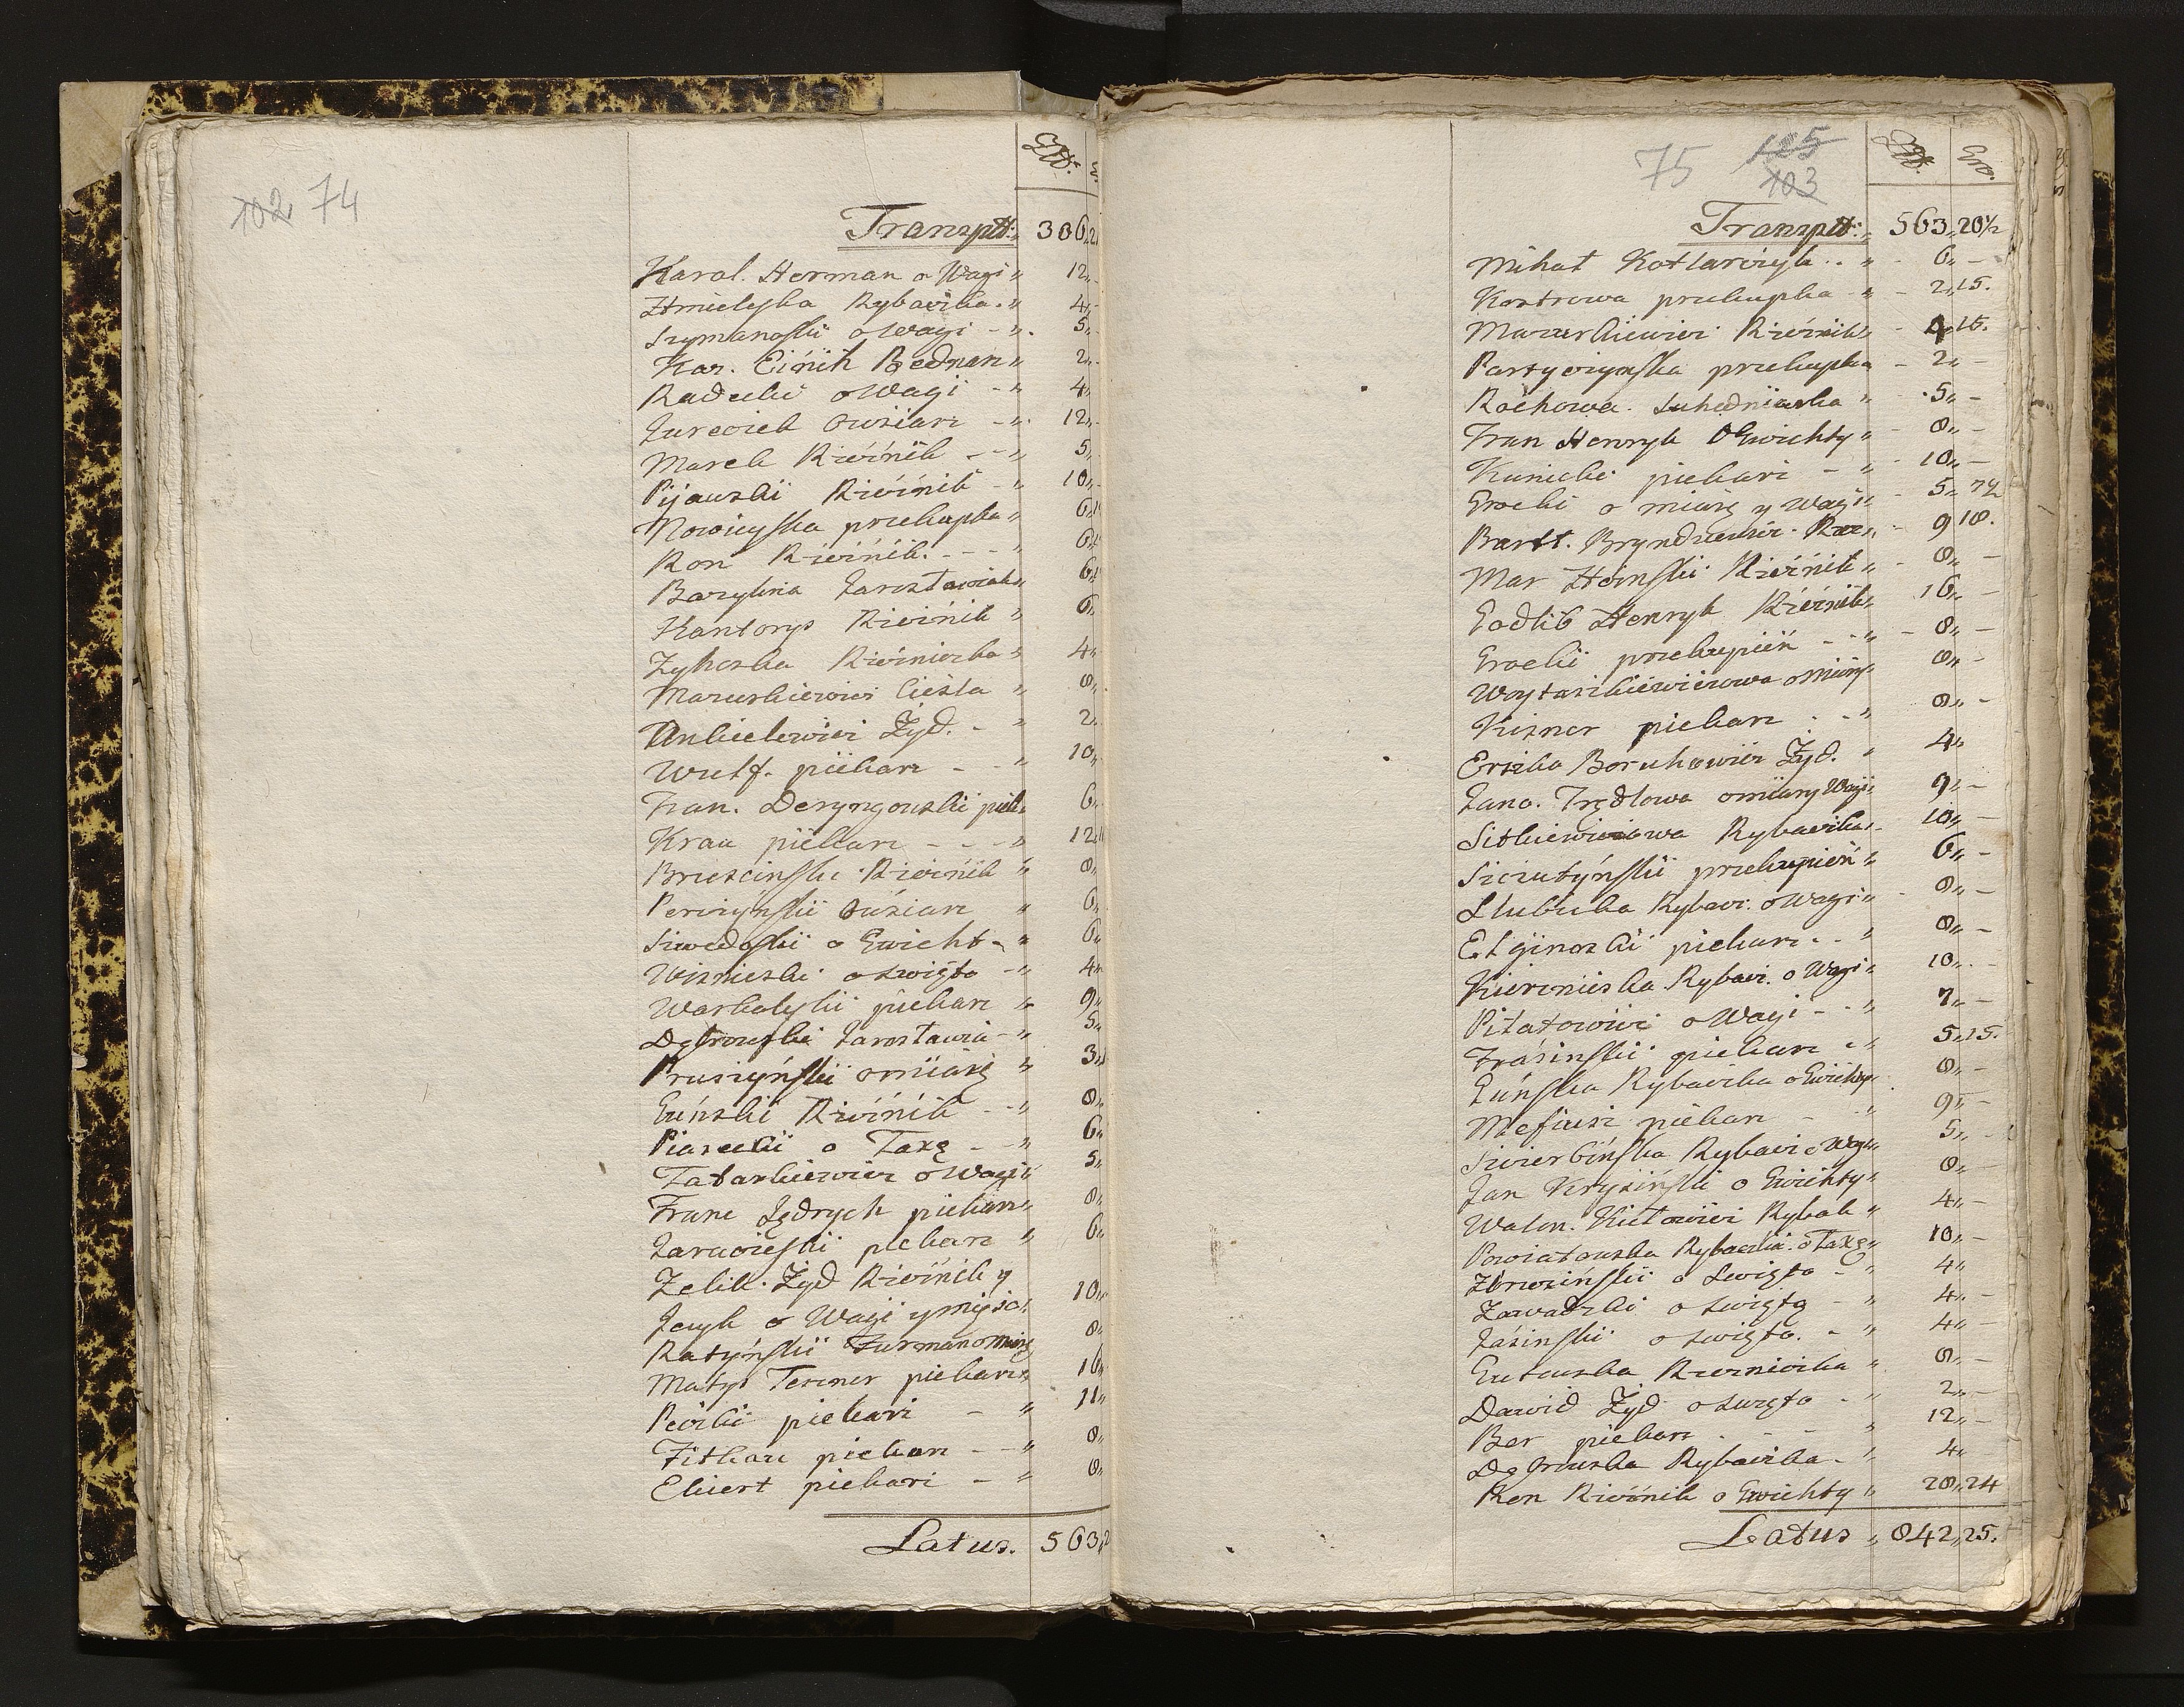 102 74
Złtt. G.
Transptt: 306,,2
Karol. Herman o Wagi ,, 12,,-
Hmieleska Rybaczka. ,, 4,,-
Szymanoskii o Wagi - ,, 5,,-
Kar. Einih Bednarz ,, 2,,-
Radecki o Wagi - ,, 4,,
Jurcoick Owsiarz - ,, 12,,-
Marek Rzeźnik - - ,, 5,,
Pijauskii Rzeźnik - ,, 10,,-
Nowicyska przekupka ,, 6,,1
Ron Rzeźnik. - - - ,, 6,,
Barylina Jarosławiak ,, 6,,
Kantorys Rzeźnik ,, 6,,
Zyheska Rzeźniczka ,, 4,,
Mazurkiewicz Cieśla ,, 8,,
Ankielewicz Żyd. - ,, 2,,
Wulf. piekarz - - ,, 10,,
Fran. Deryngouskii piek. 6,,
Krau piekarz - - - ,, 12,,
Brzescinski Rzeźnik ,, 8,,
Perczyńskii Owsiarz ,, 6,,
Siwedoskii o Gwicht - ,, 6,,
Wisnieski o swięto - ,, 4,,
Warkalyskii piekarz ,, 9,,
Dąbrouski Jarosławia - ,, 5,,
Pruszyńskii o miarę ,, 3,,
Guńskii Rzeźnik - - ,, 8,,
Piaseckii o Taxę - - ,, 6,,
Tatarkiewicz o Wagi ,, 5,,
Franc Jędrych piekarz ,, 8,,
Jarucieskii piekarz ,, 6,,
Zelik. Żyd Rzeźnik y
Jcuyk o Wagi y mięso. 10,,
Ratyńskii Furman o miarę 8,,
Matys Tesmer piekarz ,, 16,,
Peczkii piekarz - ,, 11,,
Fitkau piekarz - - ,, 8,,
Ekiert piekarz - ,, 8,,
Latus. 563,,2
75 125
103
Złtt. Gro.
Transptt: ,, 563,,20½
Mihał Kotlarczyk . . ,, 6,, -
Kostrowa przekupka - ,, - 2,,15.
Mazurkiewicz Rzeźnik ,, - 4,,15.
Partyczynska przekupka - 2,, -
Rochowa. Suhedniaska ,, 5,, -
Fran Henryk O Gwichty ,, - 8,, -
Kunicki piekarz - ,, - 10,, -
Grocki o miarę y Wagi ,, - 5,, 7½
Bartt. Bryndzewicz. Rze ,, - 9 18.
Mar Hoinski Rzeźnik ,, - 8,, -
Godlib Henryk Rzeźnik ,, 16,, -
Grockii przekupień - - ,, - 8,, -
Woytaszkiewiczowa o miarę 8,, -
Kizner piekarz . . - ,, 8,, -
Erszka Boruhowicz Żyd. ,, 4,,
Jano. Trędlowa o miary Wagi ,, 9,, -
Sitkiewiczowa Rybaczka - 10,, -
Siciutyńskii przekupień ,, 6,, -
Słubicka Rybacz. o Wagi ,, - 8,, -
Elginoskii piekarz . - ,, 8,, -
Kieresnieska Rybacz. o Wagi ,, 10,, -
Piłatowicz o Wagi - - ,, 7,, -
Trásinskii piekarz - ,, 5,,15.
Guńska Rybaczka o Gwichty 8,, -
Mefiusz piekarz - ,, 9,, -
Swierbińska Rybacz o Wagi ,, 5,, -
Jan Kryziński o Gwichty ,, 8,, -
Walen. Kietowicz Rybak ,, 4,, -
Powiatouska Rybaczka. o Taxę ,, 10,, -
Zbrozińskii o Swięto - ,, 4,,
Zawadzki o swięto - ,, 4,, -
Jasinskii o swięto. - ,, 4,, -
Gutouska Rzeznizka ,, 8,, -
Dawid Żyd o swięto - ,, 2,, -
Ber piekarz . - - ,, 12,, -
Dąbrouska Rybaczka. - ,, 4,,
Ren Rzeźnik o Gwichty ,, 28,,24
Latus ,, 842,,25.